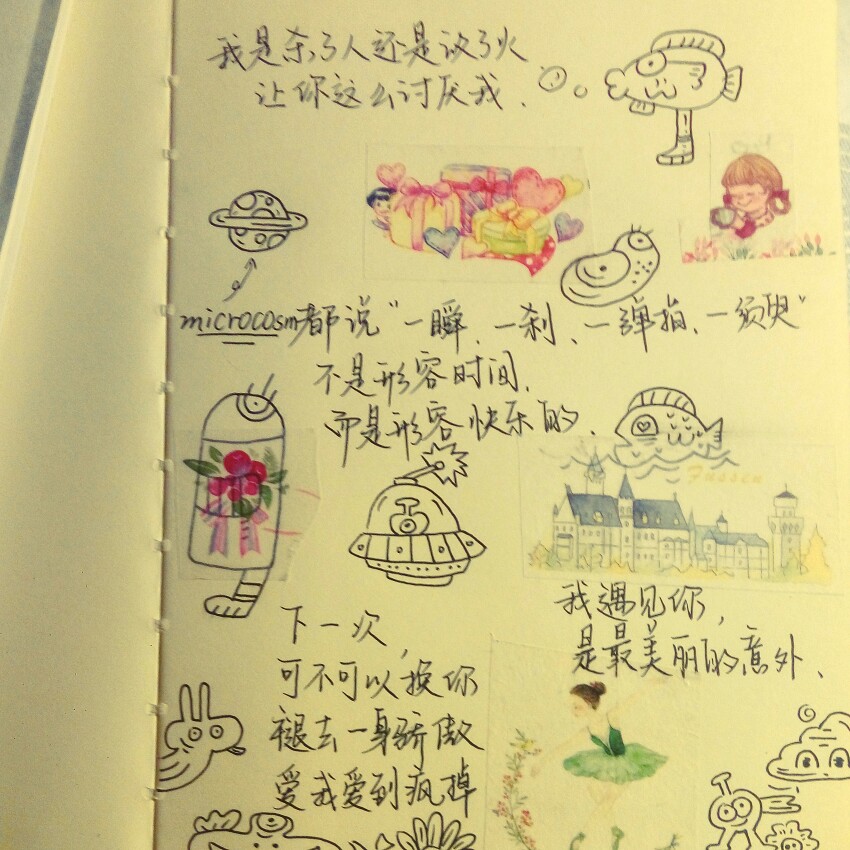 我是杀了人还是放了火
让你这么讨厌我.
microcosm都说"一瞬、一刹、一弹指、一须臾"
不是形容时间.
而是形容快乐的.
Füssen
我遇见你,
是最美丽的意外、
下一次,
可不可以换你
褪去一身骄傲
爱我爱到疯掉